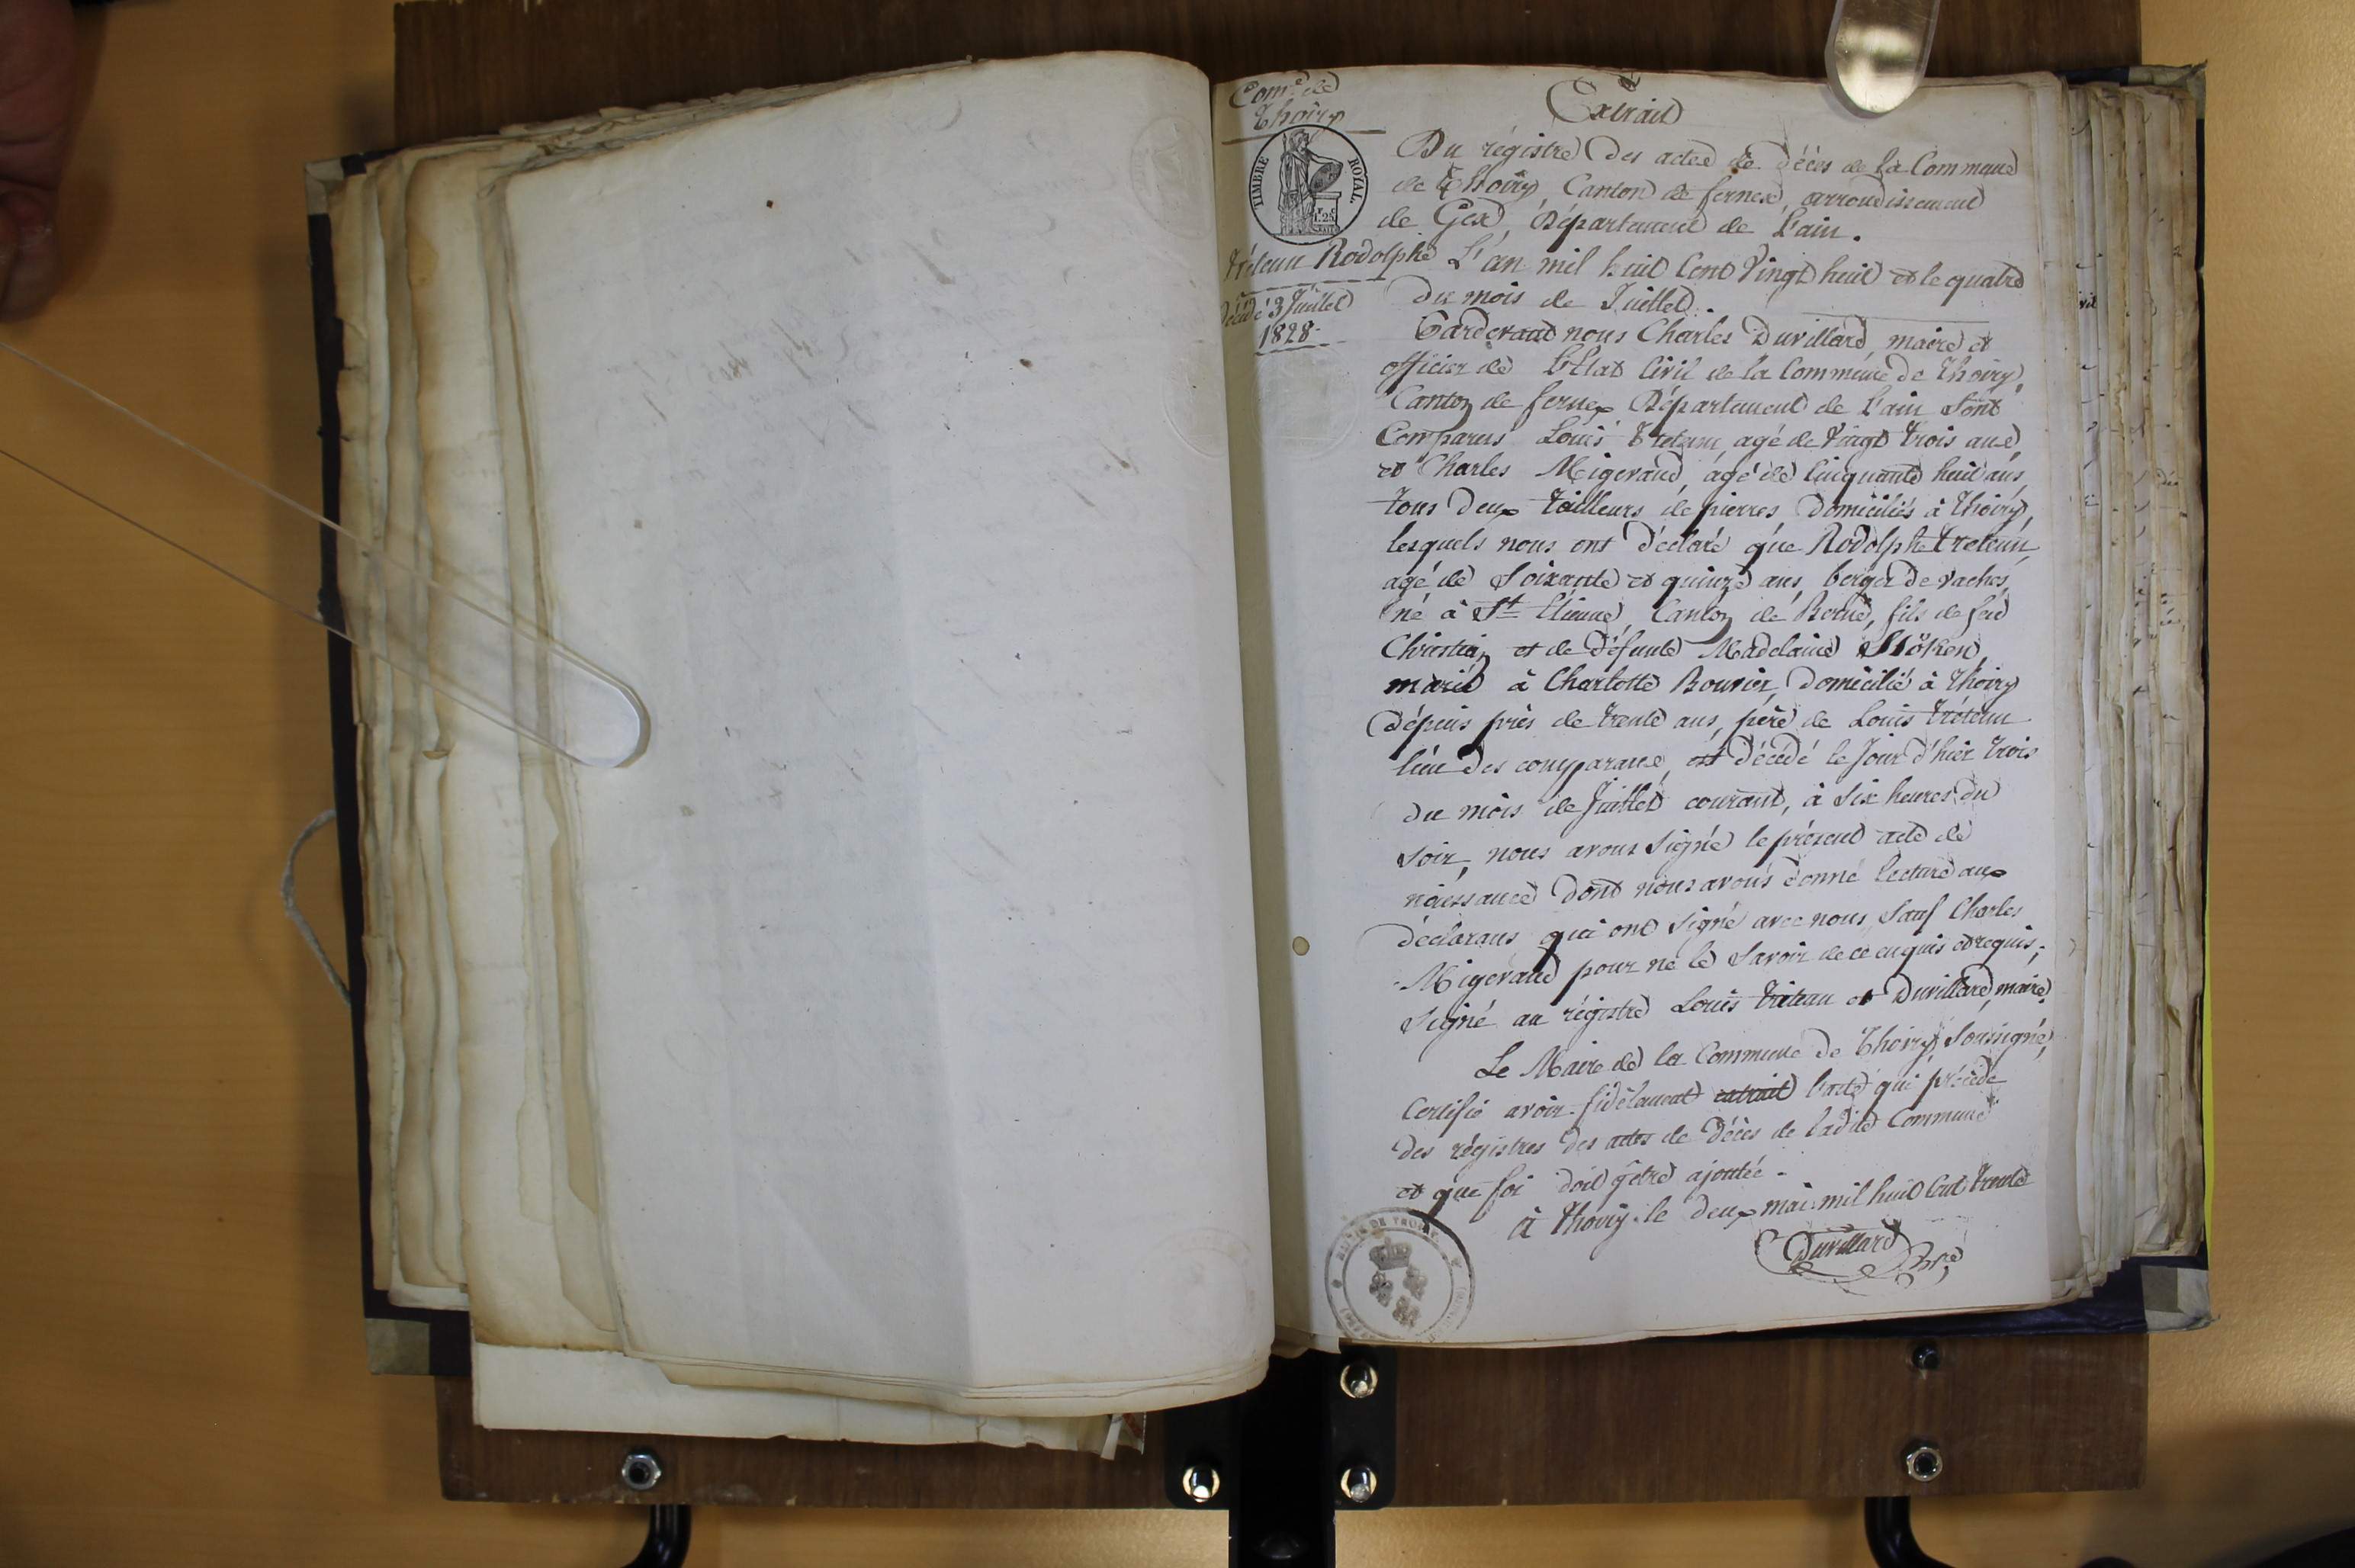 Com.e de
Thoiry
Extrait
TIMBRE ROYAL.
Du régistre des actes de décès de la Commune
de Thoiry, Canton de fernex, arrondissement
de Gex, Département de L'ain.
Rodolphe
L'an mil huit Cent Vingt huit et le quatre
Décédé 3 Juillet
1828
du mois de Juillet.
Pardevant nous Charles Duvillard, maire et
officier de L'État Civil de la Commune de Thoiry,
Canton de fernex Département de L'ain Sont
Comparus Louis Treteau, agé de Vingt trois ans,
et Charles Migerand, agé de Cinquante huit ans,
tous deux tailleurs de pierres domiciliés à Thoiry,
lesquels nous ont déclaré que Rodolphe
agé de Soixante et quinze ans, berger de vaches,
né à St Etienne, Canton de Berne, fils de feu
Christian et de défunte Madelaine Stöken,
marié à Charlotte Bouvier, domicilié à Thoiry
dépuis près de trente ans, père de Louis tréteau
l'un des comparans, est décédé le Jour d'hier trois
du mois de Juillet courant, à Six heures du
Soir, nous avons Signé le présent acte de
naissance dont nous avons donné lecture aux
déclarans qui ont Signé avec nous, Sauf Charles
Migerand pour ne le Savoir de ce enquis et requis;
Signé au régistre Louis tréteau et Duvillard, maire.
Le Maire de la Commune de Thoiry, Soussigné,
Certifie avoir fidèlement extrait l'acte qui précède
des régistres des actes de Décès de ladite Commune
et que foi doit y être ajoutée.
à Thoiry le deux mai mil huit Cent trente
Duvillard